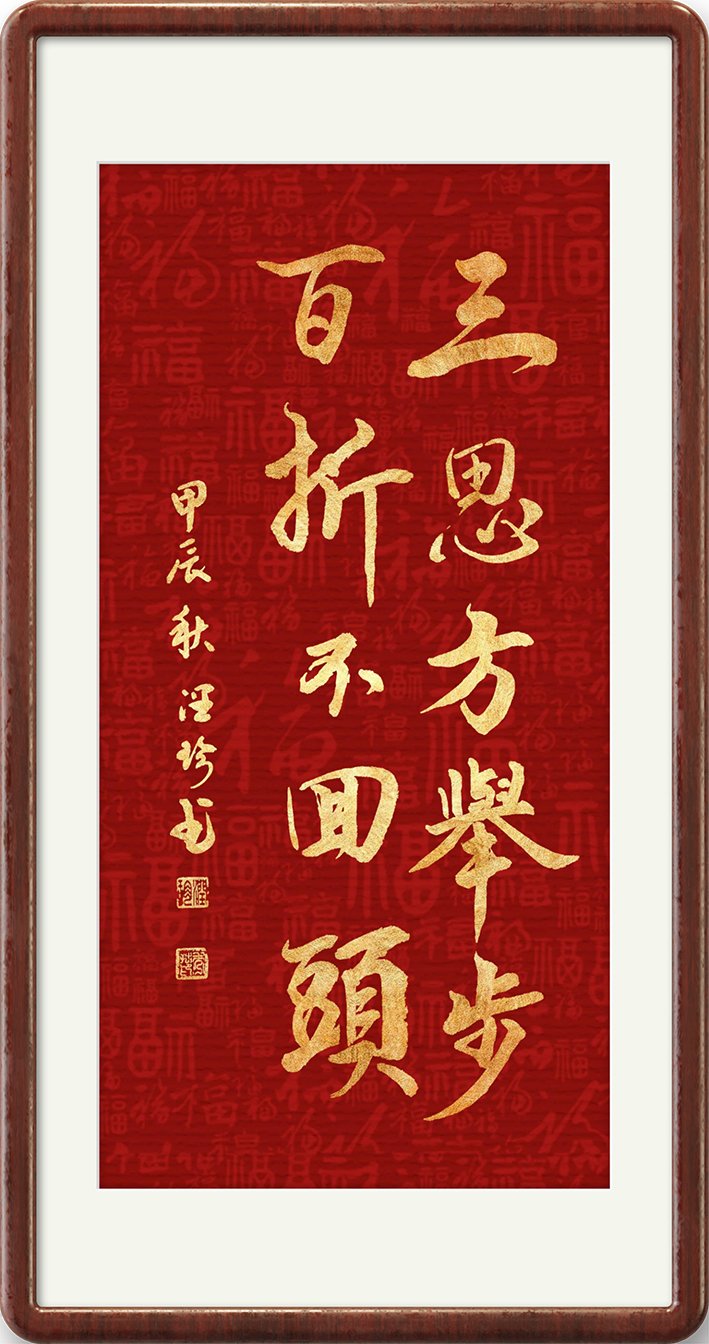 三思方舉步
百折不回頭
甲辰秋涇珍书